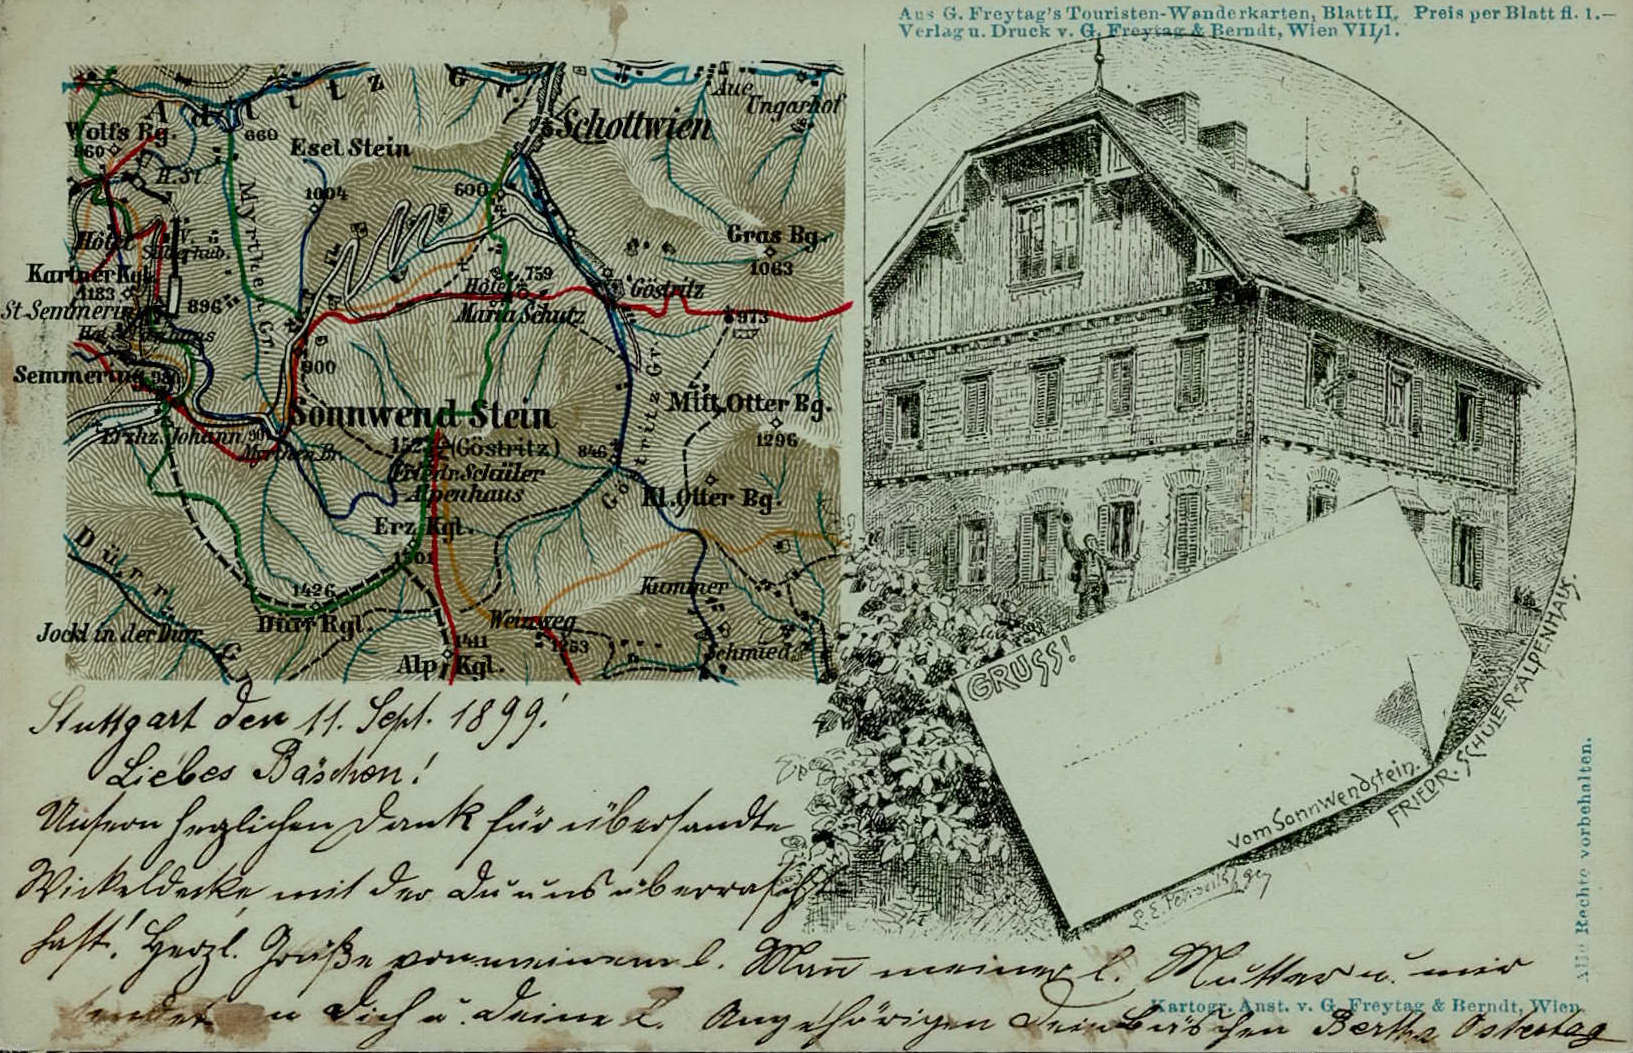 Aus G. Freytag's Touristen-Wanderkarten, Blatt II. Preis per Blatt fl. 1.—
Verlag u. Druck v. G. Freytag & Berndt, Wien VII/1.
Adlitz Gr.
Schottwien
Aue
Ungarhof
Wolfs Bg.
960
660
Esel Stein
1004
600
H. St.
Myrthen Gr.
Gras Bg.
1063
Hotel
Kartner Kgl.
1183
St. Semmering
896
759
Hotel
Maria Schutz
Göstritz
973
900
Semmering
Sonnwend Stein
1523 (Göstritz)
Friedr. Schüler
Alpenhaus
Erzhz. Johann
Myrthen Br.
846
Göstritz Gr.
Mitt. Otter Bg.
1296
Kl. Otter Bg.
Erz Kgl.
1501
Dürr Gr.
1426
Dürr Kgl.
Jockl in der Dürr
Alp Kgl.
1411
Weinweg
1253
Kummer
Schmied
GRUSS!
vom Sonnwendstein.
FRIEDR. SCHÜLER-ALPENHAUS.
Alle Rechte vorbehalten.
Stuttgart den 11. Sept. 1899!
Liebes Bäschen!
Unsern herzlichen Dank für übersandte
Wickeldecke, mit der Du uns überrascht
hast! Herzl. Grüße von meinem l. Mann meiner l. Mutter u. mir
sendet an Dich u. Deine l. Angehörigen Dein Bäschen Bertha Ostertag
Kartogr. Anst. v. G. Freytag & Berndt, Wien.